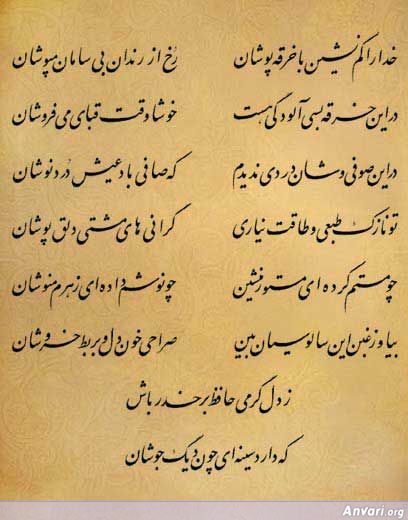 خدا را کم نشین با خرقه پوشان    رخ از رندان بی سامان مپوشان
در این خرقه بسی آلودگی هست    خوشا وقت قبای می فروشان
در این صوفی وشان دردی ندیدم    که صافی باد عیش دردنوشان
تو نازک طبعی و طاقت نیاری    گرانی های مشتی دلق پوشان
چو مستم کرده ای مستور منشین    چو نوشم داده ای زهرم منوشان
بیا و ز غبن این سالوسیان بین    صراحی خون دل و بربط خروشان
ز دل گرمی حافظ بر حذر باش
که دارد سینه ای چون دیگ جوشان
Anvari.org